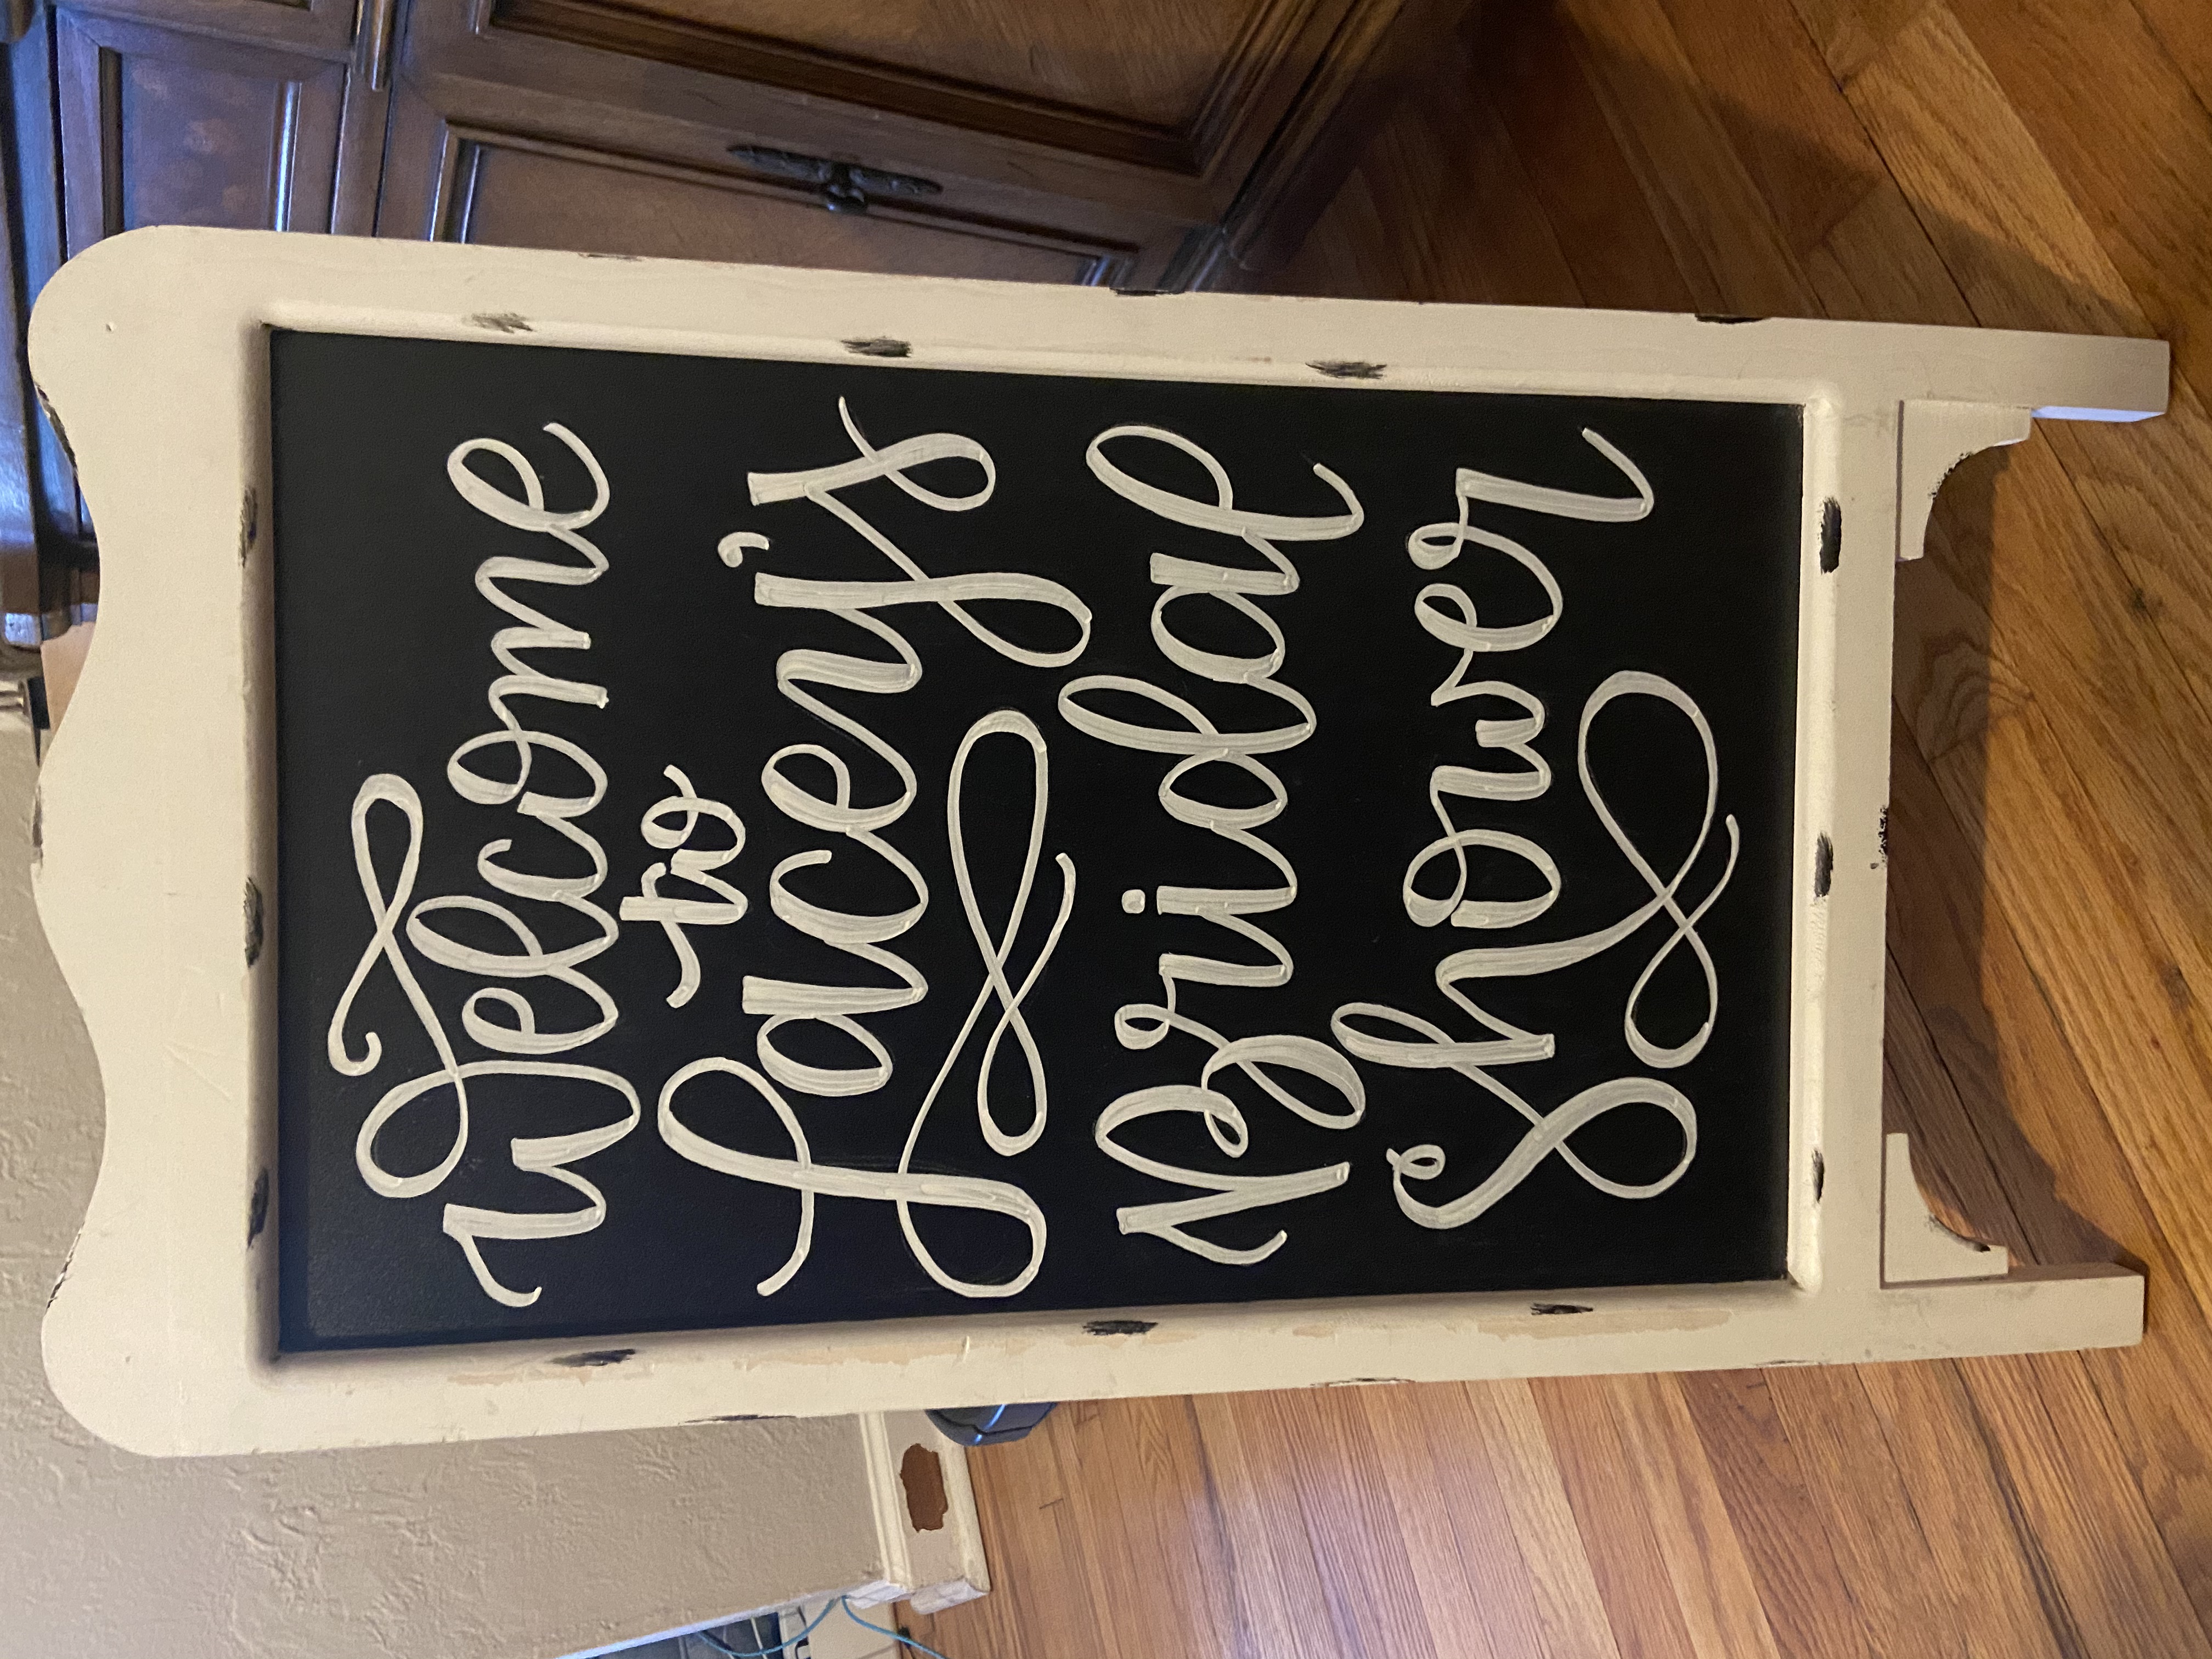 Welcome
to
Lacey's
Bridal
Shower